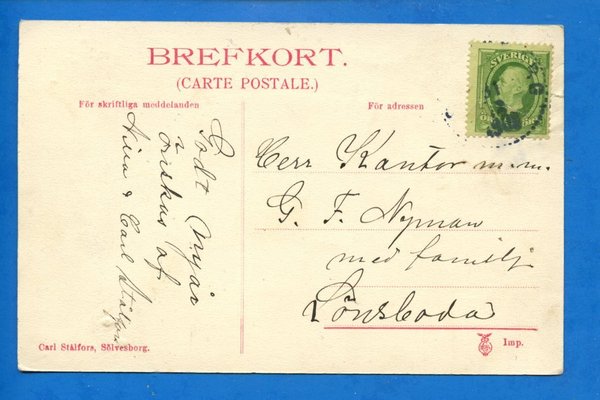 BREFKORT.
(CARTE POSTALE.)
SVERIGE
För skriftliga meddelanden
För adressen
Godt nyår
önskas af
Alma & Carl Stålfors
Herr Kantor m.m.
G. F. Nyman
med familj
Lönsboda
Carl Stålfors, Sölvesborg.
Imp.